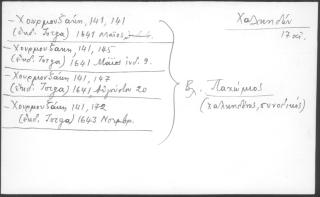 Χαλκηδών
17 αι.
– Χουρμουδάκη, 141, 141
(ἐκδ. Τσιγα) 1641 Μαΐος
– Χουρμουδάκη, 141, 145
(ἐκδ. Τσιγα) 1641 Μαΐος ἰνδ. 9.
– Χουρμουδάκη 141, 147
(ἐκδ. Τσιγα) 1641, Αὐγούστου 20
– Χουρμουδάκη 141, 172
(ἐκδ. Τσιγα) 1643 Νοεμβρ.
Βλ. Παχώμιος
(Χαλκηδόνος, συνοδικός)